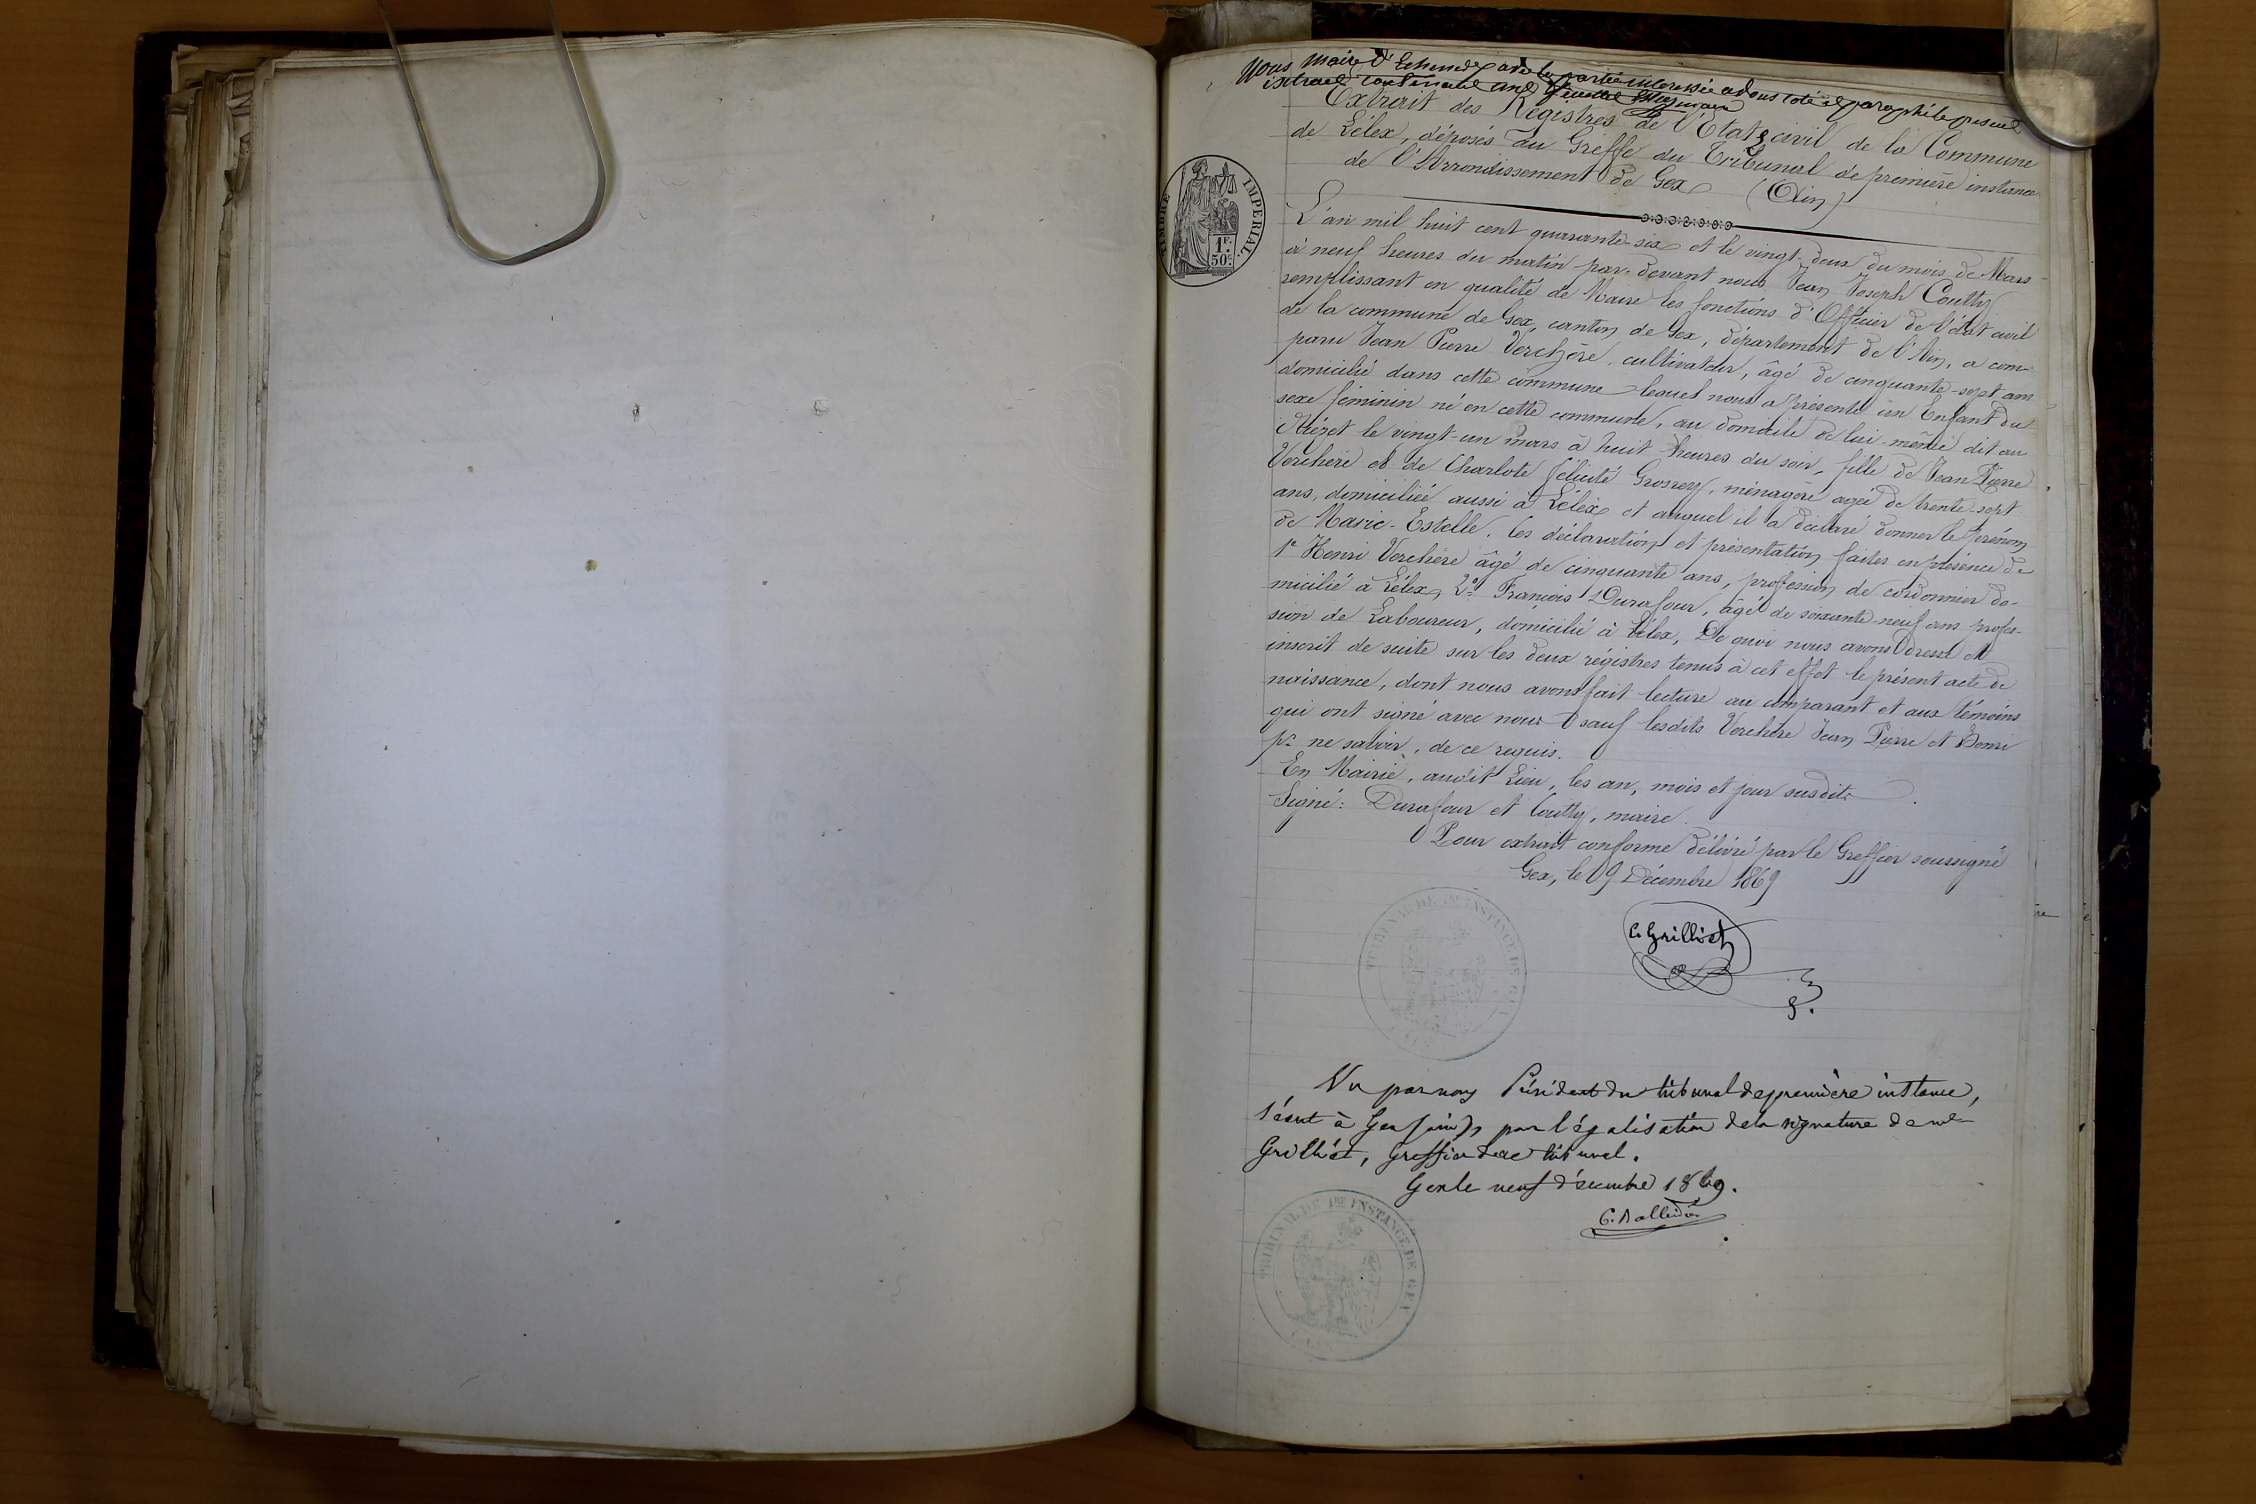 Nous maire d'Echenevex avec la partie interressée avons coté et paraphé le présent
extrait contenant une feuillet
Extrait des Registres de l'Etat civil de la Commune
de Lélex, déposés au Greffe du Tribunal de première instance
de l'Arrondissement de Gex (Ain)
TIMBRE IMPERIAL.
1F.
50C.
L'an mil huit cent quarante-six et le vingt-deux du mois de Mars
à neuf heures du matin par-devant nous Jean Joseph Coutty
remplissant en qualité de Maire les fonctions d'Officier de l'état civil
de la commune de Gex, canton de Gex, département de l'Ain, a com-
paru Jean Pierre Verchère, cultivateur, âgé de cinquante-sept ans
domicilié dans cette commune lequel nous a présenté un Enfant du
sexe féminin né en cette commune, au domicile de lui-même dit au
le vingt-un mars à huit heures du soir, fille de Jean Pierre
Verchère et de Charlote félicité Grosrey, ménagère agée de trente-sept
ans, domiciliée aussi à Lélex et auquel il a déclaré donner le prénom
de Marie-Estelle. les déclaration et présentation faites en présence de
1º Henri Verchère âgé de cinquante ans, profession de cordonnier do-
micilié à Lélex, 2º François Durafour, âgé de soixante-neuf ans profes-
sion de Laboureur, domicilié à Lélex, De quoi nous avons dressé et
inscrit de suite sur les deux régistres tenus à cet effet le présent acte de
naissance, dont nous avons fait lecture au comparant et aux témoins
qui ont signé avec nous sauf lesdits Verchère Jean Pierre et Henri
pr ne savoir, de ce requis.
En Mairie, audit Lieu, les an, mois et jour susdits
Signé: Durafour et Coutty, maire.
Pour extrait conforme délivré par le Greffier soussigné
Gex, le 9 Décembre 1869
C. Grilliet
TRIBUNAL DE 1RE INSTANCE DE GEX
Vu par nous Président du tribunal de première instance,
séant à Gex (ain), pour légalisation de la signature de me
Grilliet, Greffier de ce tribunal.
Gex le neuf décembre 1869.
TRIBUNAL DE 1RE INSTANCE DE GEX